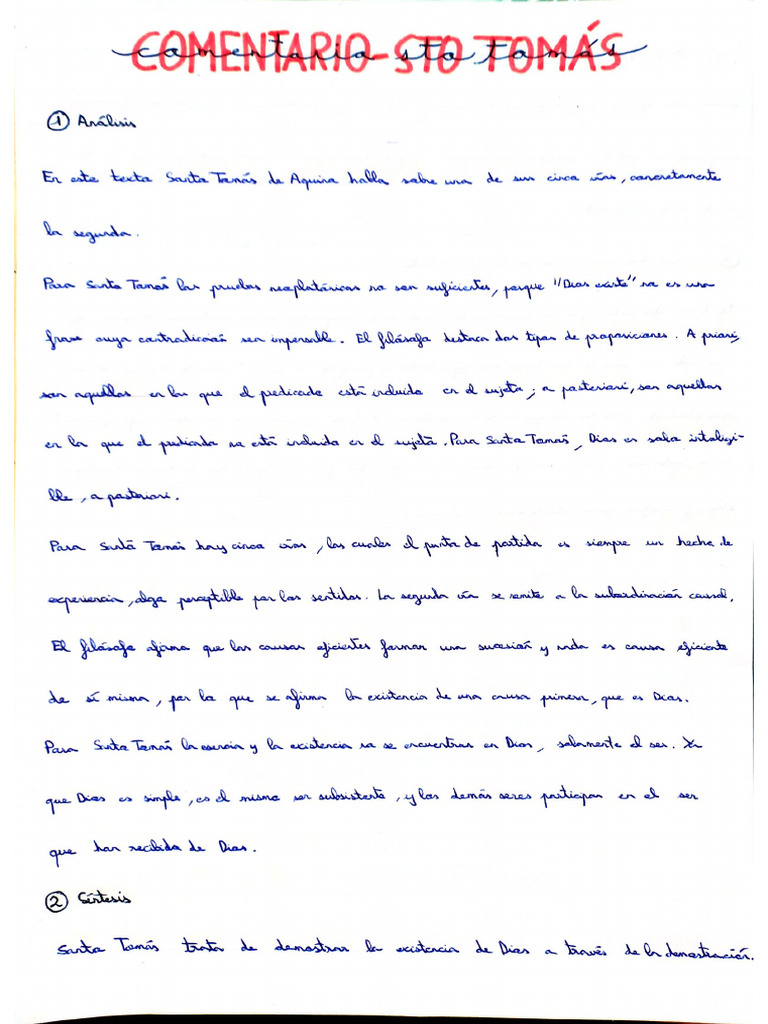 COMENTARIO-STO TOMÁS
comentario sto tomás
1 Análisis
En este texto Santo Tomás de Aquino habla sobre una de sus cinco vías, concretamente
la segunda.
Para Santo Tomás las pruebas neoplatónicas no son suficientes, porque "Dios existe" no es una
frase cuya contradicción sea impensable. El filósofo destaca dos tipos de proposiciones. A priori,
son aquellas en las que el predicado está incluido en el sujeto; a posteriori, son aquellas
en la que el predicado no está incluido en el sujeto. Para Santo Tomás, Dios es solo inteligi-
ble, a posteriori.
Para Santo Tomás hay cinco vías, las cuales el punto de partida es siempre un hecho de
experiencia, algo perceptible por los sentidos. La segunda vía se remite a la subordinación causal.
El filósofo afirma que las causas eficientes forman una sucesión y nada es causa eficiente
de sí misma, por lo que se afirma la existencia de una causa primera, que es Dios.
Para Santo Tomás la esencia y la existencia no se encuentran en Dios, solamente el ser. Ya
que Dios es simple, es el mismo ser subsistente, y los demás seres participan en el ser
que han recibido de Dios.
2 Síntesis
Santo Tomás trata de demostrar la existencia de Dios a través de la demostración.